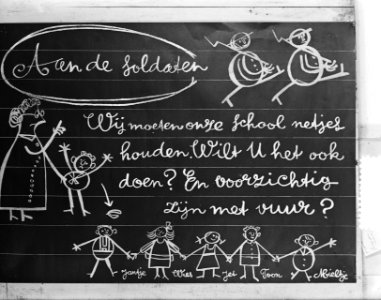 Aan de soldaten
Wij moeten onze school netjes
houden. Wilt U het ook
doen? En voorzichtig
zijn met vuur?
Jantje Wies Jet Toon Nieltje